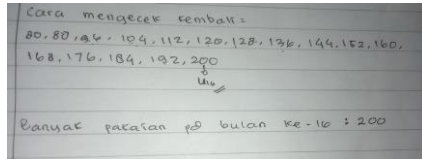 Cara mengecek kembali =
80, 80, 96, 104, 112, 120, 128, 136, 144, 152, 160,
168, 176, 184, 192, 200
U16
Banyak pakaian pd bulan ke-16 : 200